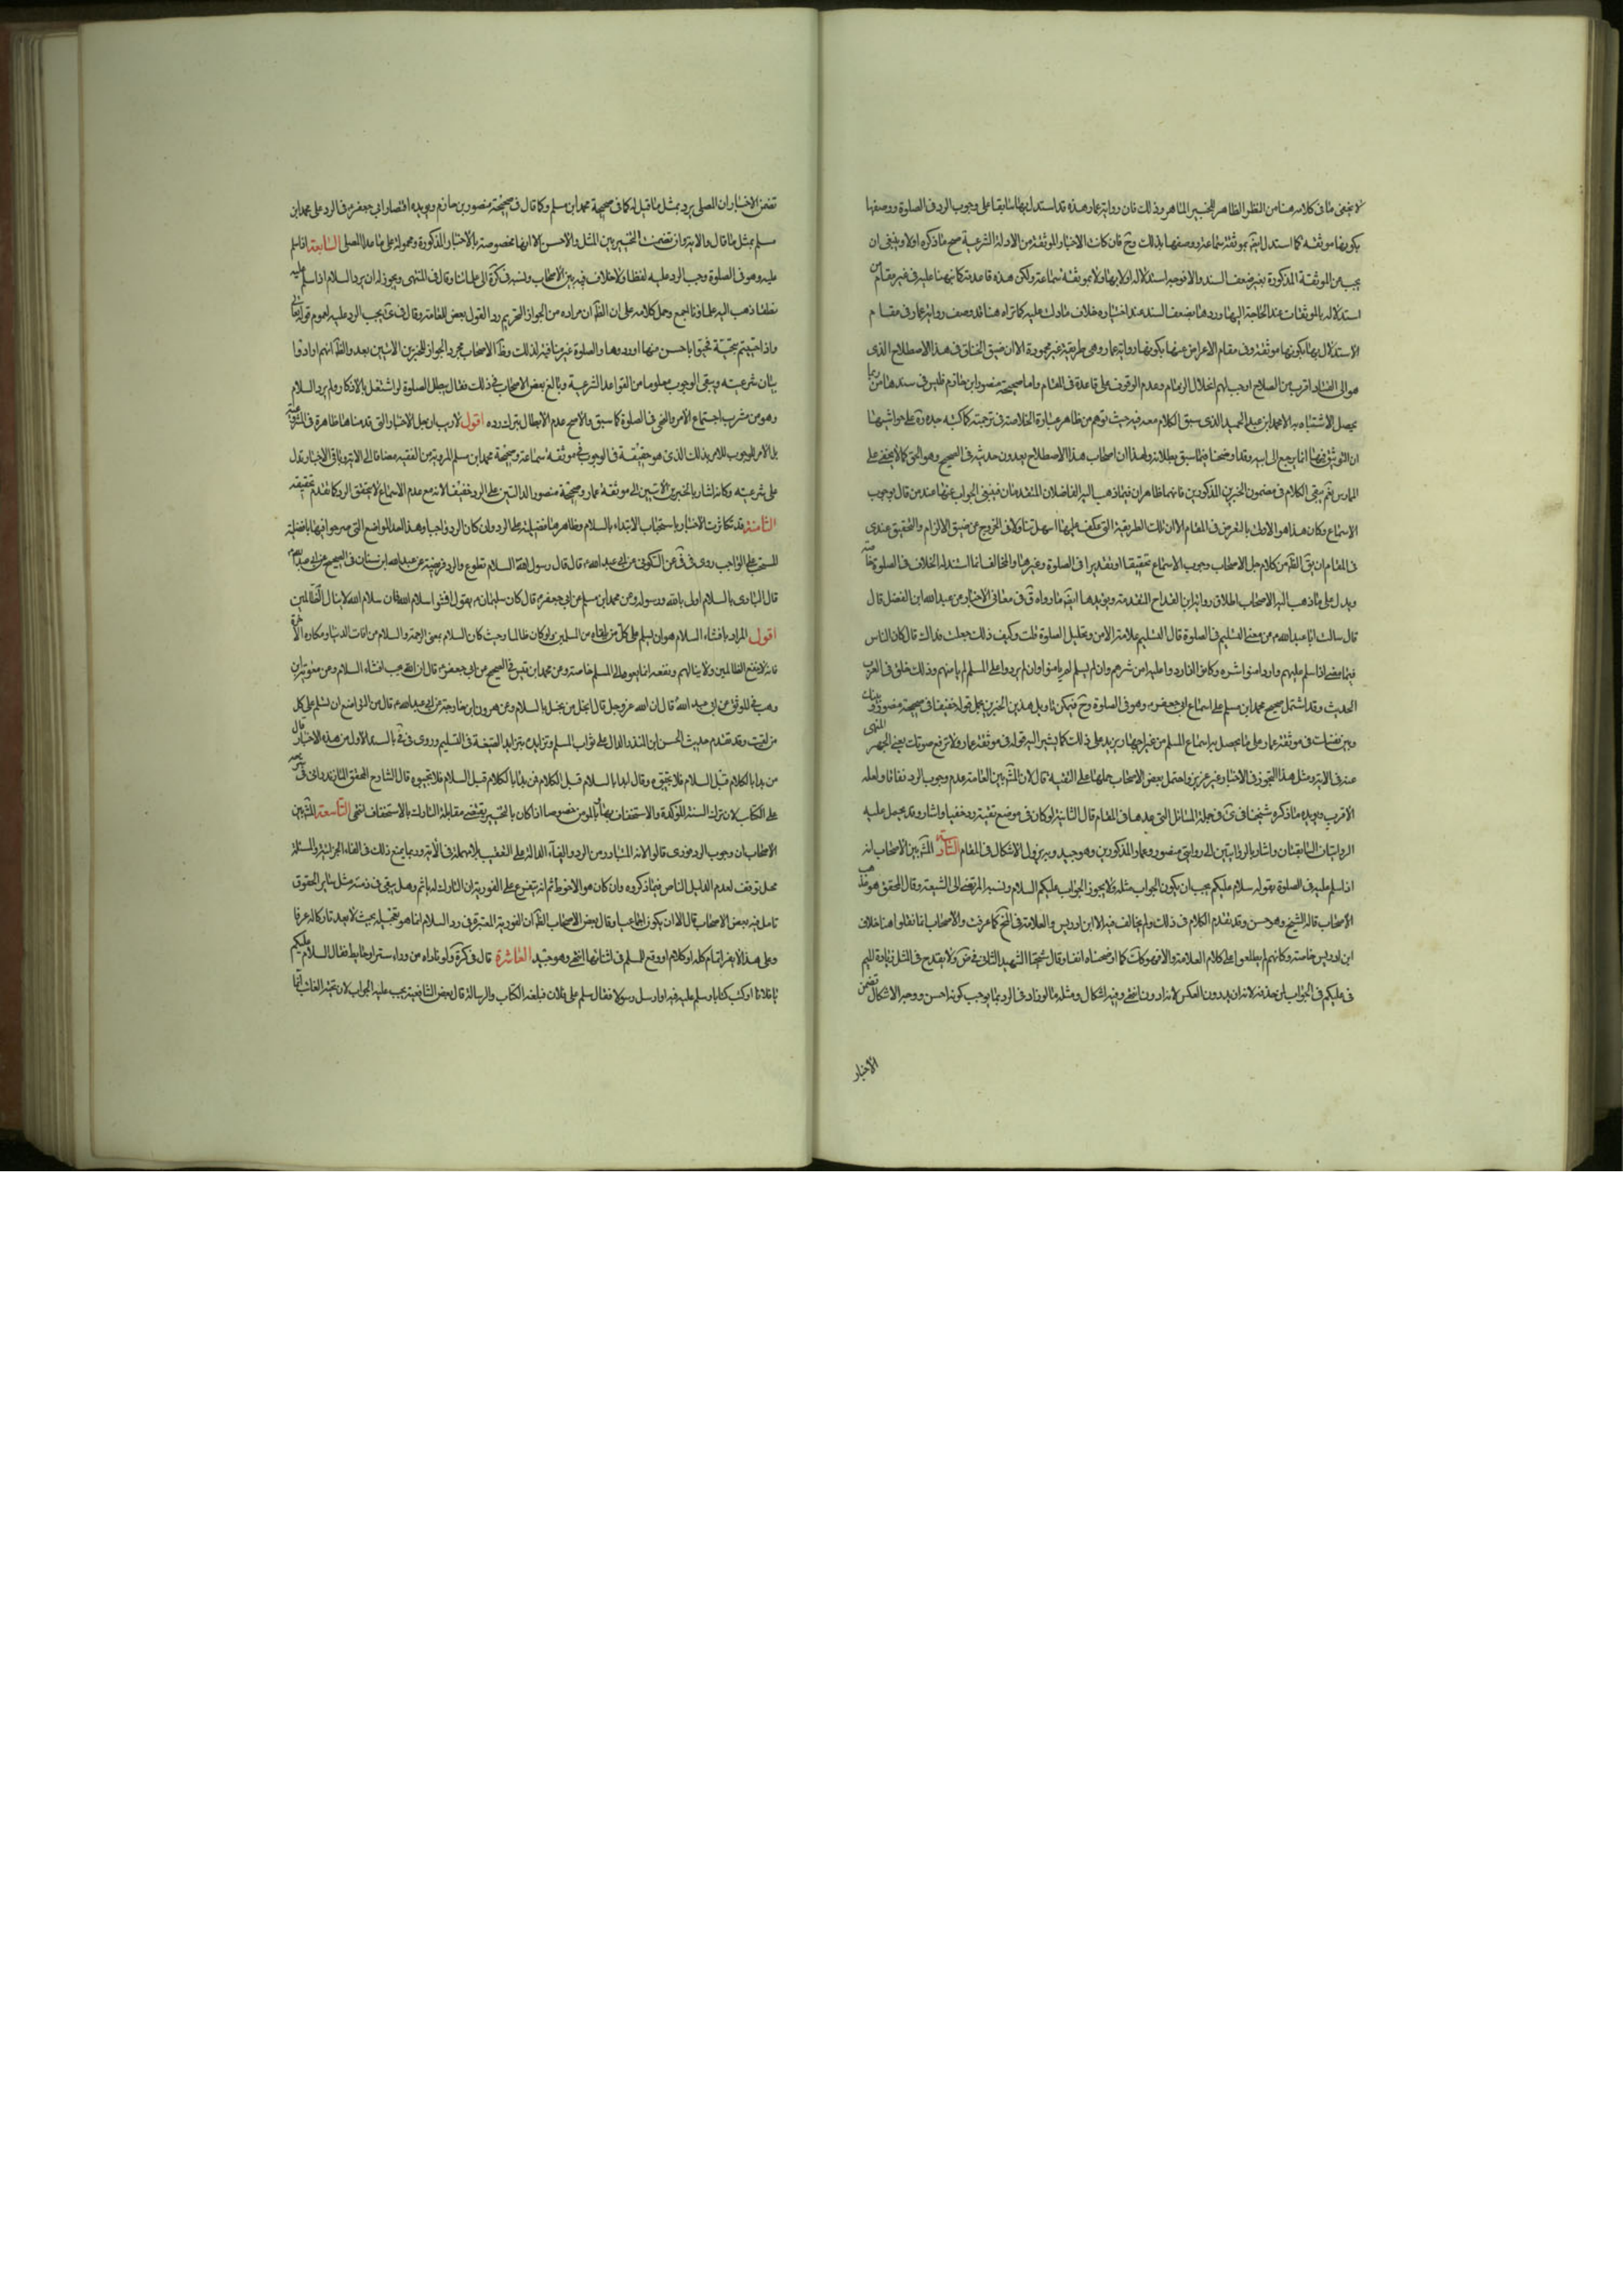 لا يخفى ما في كلامه هنا من النظر الظاهر للخبير الماهر وذلك فان رواية عمار هذه قد استدل بها سابقا على وجوب الرد في الصلوة ووصفها
بكونها موثقة كما استدل ايضا بموثقة سماعة ووصفها بذلك وح فان كانت الاخبار الموثقة من الادلة الشرعية صح ما ذكره اولا وينبغي ان
يجيب عن الموثقة المذكورة بغير ضعف السند والا فوجه استدلاله اولا بها ولا بموثقة سماعة ولكن هذه قاعدته كما نبهنا عليه في غير مقام من
استدلاله بالموثقات عند الحاجة اليها وردها بضعف السند عند اختياره خلاف ما دلت عليه كما تراه هنا قد وصف رواية عمار في مقام
الاستدلال بها بكونها موثقة وفي مقام الاعراض عنها بكونها رواية عمار وهي طريقة غير محمودة الا ان ضيق الخناق في هذا الاصطلاح الذي
هو الى الفساد اقرب من الصلاح اوجب لهم انحلال الزمام وعدم الوقوف على قاعدة في المقام واما صحيحة منصور ابن حازم فليس في سندها من ربما
يحصل الاشتباه به الا محمد ابن عبد الحميد الذي سبق الكلام معه فيه حيث توهم من ظاهر عبارة الخلاصة في ترجمته كما كتبه جده ره على حواشيها
ان التوثيق فيها انما يرجع الى ابيه وقد اوضحنا فيما سبق بطلانه ولهذا ان اصحاب هذا الاصطلاح يعدون حديثه في الصحيح وهو الحق كما لا يخفى على
الممارس نعم يبقى الكلام في مضمون الخبرين المذكورين فانهما ظاهران فيما ذهب اليه الفاضلان المتقدمان فينبغي الجواب عنهما عند من قال بوجوب
الاسماع وكان هذا هو الاولى بالغرض في المقام الا ان تلك الطريقة التي عكف عليها اسهل تناولا في الخروج من ضيق الالزام والتحقيق عندي
في المقام ان يق الظ من كلام جل الاصحاب وجوب الاسماع تحقيقا او تقديرا في الصلوة وغيرها والمخالف انما استند الخلاف في الصلوة خاصة
ويدل على ما ذهب اليه الاصحاب اطلاق رواية ابن القداح المتقدمة ويؤيدها ايضا ما رواه ق في معاني الاخبار عن عبد الله ابن الفضل قال
قال سالت ابا عبد الله ع عن معنى التسليم في الصلوة قال التسليم علامة الامن وتحليل الصلوة قلت وكيف ذلك جعلت فداك قال كان الناس
فيما مضى اذا سلم عليهم وارد امنوا شره وكانوا اذا ردوا عليه امن شرهم وان لم يسلم لم يامنوا وان لم يردوا على المسلم لم يامنهم وذلك خلق في العرب
الحديث وقد اشتمل صحيح محمد ابن مسلم على اسماع ابي جعفر ع وهو في الصلوة وح فيمكن تاويل هذين الخبرين بحمل قوله خفيا في صحيحة منصور و
وبين نفسك في موثقة عمار على ما يحصل به اسماع المسلم من غير اجهار يزيد على ذلك كما يشير اليه قوله في موثقة عمار ولا ترفع صوتك يعني الجهر المنهي
عنه في الاية ومثل هذا التجوز في الاخبار غير عزيز واحتمل بعض الاصحاب حملها على التقية قال لان المشهور بين العامة عدم وجوب الرد نطقا ولعله
الاقرب ويؤيده ما ذكره شيخنا في ى في جملة المسائل التي عدها في المقام قال الثانية لو كان في موضع تقية رد خفيا واشار وقد يحمل عليه
الروايتان السابقتان واشار بالروايتين الى روايتي منصور وعمار المذكورين وهو جيد وبه يزول الاشكال في المقام السادسة المشهور بين الاصحاب انه
اذا سلم عليه في الصلوة بقوله سلام عليكم يجب ان يكون الجواب مثله ولا يجوز الجواب عليكم السلام ونسبه المرتضى الى الشيعة وقال المحقق هو مذهب
الاصحاب قاله الشيخ وهو حسن وقد تقدم الكلام في ذلك ولم يخالف فيه الا ابن ادريس والعلامة في المخ كما عرفت والاصحاب انما نقلوا هنا خلاف
ابن ادريس خاصة وكانهم لم يطلعوا على كلام العلامة والا فهو كك كما اوضحناه انفا وقال شيخنا الشهيد الثاني في ض ولا يقدح في المثل زيادة الميم
في عليكم في الجواب لمن حذفه لانه ازيد دون العكس لانه ادون انتهى وفيه اشكال ومثله ما لو زاد في الرد بما يوجب كونه احسن ووجه الاشكال تضمن
الاخبار
تضمن الاخبار ان المصلي يرد بمثل ما قيل له كما في صحيحة محمد ابن مسلم وكما قال في صحيحة منصور بن حازم ويؤيده اقتصار ابي جعفر ع في الرد على محمد ابن
مسلم بمثل ما قال والاية وان تضمنت التخيير بين المثل والاحسن الا انها مخصوصة بالاخبار المذكورة ومحمولة على ما عدا المصلي السابعة اذا سلم
عليه وهو في الصلوة وجب الرد عليه لفظا ولا خلاف فيه بين الاصحاب ونسبه في كرة الى علمائنا وقال في المنتهى ويجوز له ان يرد السلام اذا سلم عليه
نطقا ذهب اليه علماؤنا اجمع وحمل كلامه على ان الظ ان مراده من الجواز التحريم ردا لقول بعض العامة وقال في ى يجب الرد عليه لعموم قوله تعالى
واذا حييتم بتحية فحيوا باحسن منها او ردوها والصلوة غير منافية لذلك وظ الاصحاب مجرد الجواز للخبرين الاتيين بعد والظ انهم ارادوا
بيان شرعيته ويبقى الوجوب معلوما من القواعد الشرعية وبالغ بعض الاصحاب في ذلك فقال يبطل الصلوة لو اشتغل بالاذكار ولم يرد السلام
وهو من مشرب اجتماع الامر والنهي في الصلوة كما سبق والاصح عدم الابطال بترك رده اقول لا ريب ان جل الاخبار التي قدمناها ظاهرة في الشرعية
بل الامر الموجوب للامر بذلك الذي هو حقيقة في الوجوب في موثقة سماعة وصحيحة محمد ابن مسلم المروية من الفقيه مضافا الى الاية وباقي الاخبار تدل
على شرعيته وكانه اشار بالخبرين الاتيين الى موثقة عمار وصحيحة منصور الدالتين على الرد خفيا لانه مع عدم الاسماع لا يتحقق الرد كما تقدم تحقيقه
الثامنة قد تكاثرت الاخبار باستحباب الابتداء بالسلام وظاهرها فضيلته على الرد وان كان الرد واجبا وهذا احد المواضع التي صرحوا فيها بافضلية
المستحب على الواجب روى في في عن السكوني عن ابي عبد الله ع قال قال رسول الله ص السلام تطوع والرد فريضة وعن عبد الله ابن سنان في الصحيح عن ابي عبد الله ع
قال البادى بالسلام اولى بالله ورسوله وعن محمد ابن مسلم عن ابي جعفر ع قال كان سليمان ره يقول افشوا سلام الله فان سلام الله لا ينال الظالمين
اقول المراد بافشاء السلام هو ان يسلم على كل من يلقاه من المسلمين ولو كان ظالما وحيث كان السلام بمعنى الرحمة والسلام من افات الدنيا ومكاره الاخرة
فانه لا ينفع الظالمين ولا ينالهم ونفعه انما يعود الى المسلم خاصة وعن محمد ابن قيس في الصحيح عن ابي جعفر ع قال ان الله يحب افشاء السلام وعن معوية ابن
وهب في الموثق عن ابي عبد الله ع قال ان الله عز وجل قال البخيل من يبخل بالسلام وعن هرون ابن خارجة عن ابي عبد الله ع قال من التواضع ان تسلم على كل
من لقيت وقد تقدم حديث الحسن ابن المنذر الدال على ثواب المسلم وتزايده بتزايد الصيغة في التسليم وروى في في بالسند الاول من هذه الاخبار قال
من بدا بالكلام قبل السلام فلا تجيبوه وقال ابدا بالسلام قبل الكلام فمن بدا بالكلام قبل السلام فلا تجيبوه قال الشارح المحقق المازندراني في شرحه
على الكتاب لان ترك السنة المؤكدة والاستخفاف بها بالمومن خصوصا اذا كان بالتحيير يقتضي مقابلة التارك بالاستخفاف انتهى التاسعة المشهور بين
الاصحاب ان وجوب الرد فوري قالوا لانه المتبادر من الرد والفاء الدالة على التعقيب بلا مهلة في الاية وربما يمنع ذلك في الفاء الجزائية والمسئلة
محل توقف لعدم الدليل الناص فيما ذكروه وان كان هو الاحوط ثم انه يتفرع على الفورية ان التارك له ياثم وهل يبقى في ذمته مثل ساير الحقوق
تامل فيه بعض الاصحاب قال الا ان يكون اجماعيا وقال بعض الاصحاب الظ ان الفورية المعتبرة في رد السلام انما هو تعجيله بحيث لا يعد تاركا له عرفا
وعلى هذا لا يضر اتمام كلمة او كلام او وقع السلم في اثنائها انتهى وهو جيد العاشرة قال في كرة ولو ناداه من وراء ستر او حايط فقال السلام عليكم
يا فلان او كتب كتابا وسلم عليه فيه او ارسل رسولا فقال سلم على فلان فبلغه الكتاب والرسالة قال بعض الشافعية يجب عليه الجواب لان تحية الغائب انما